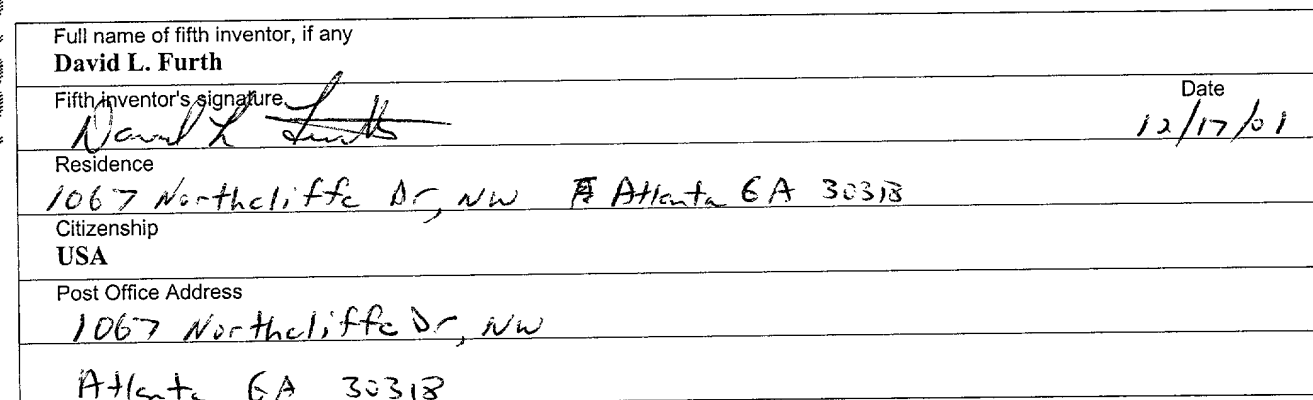 Full name of fifth inventor, if any
David L. Furth
Fifth inventor's signature
David L Furth
Date
12/17/01
Residence
1067 Northcliffe Dr, NW Atlanta GA 30318
Citizenship
USA
Post Office Address
1067 Northcliffe Dr, NW
Atlanta GA 30318